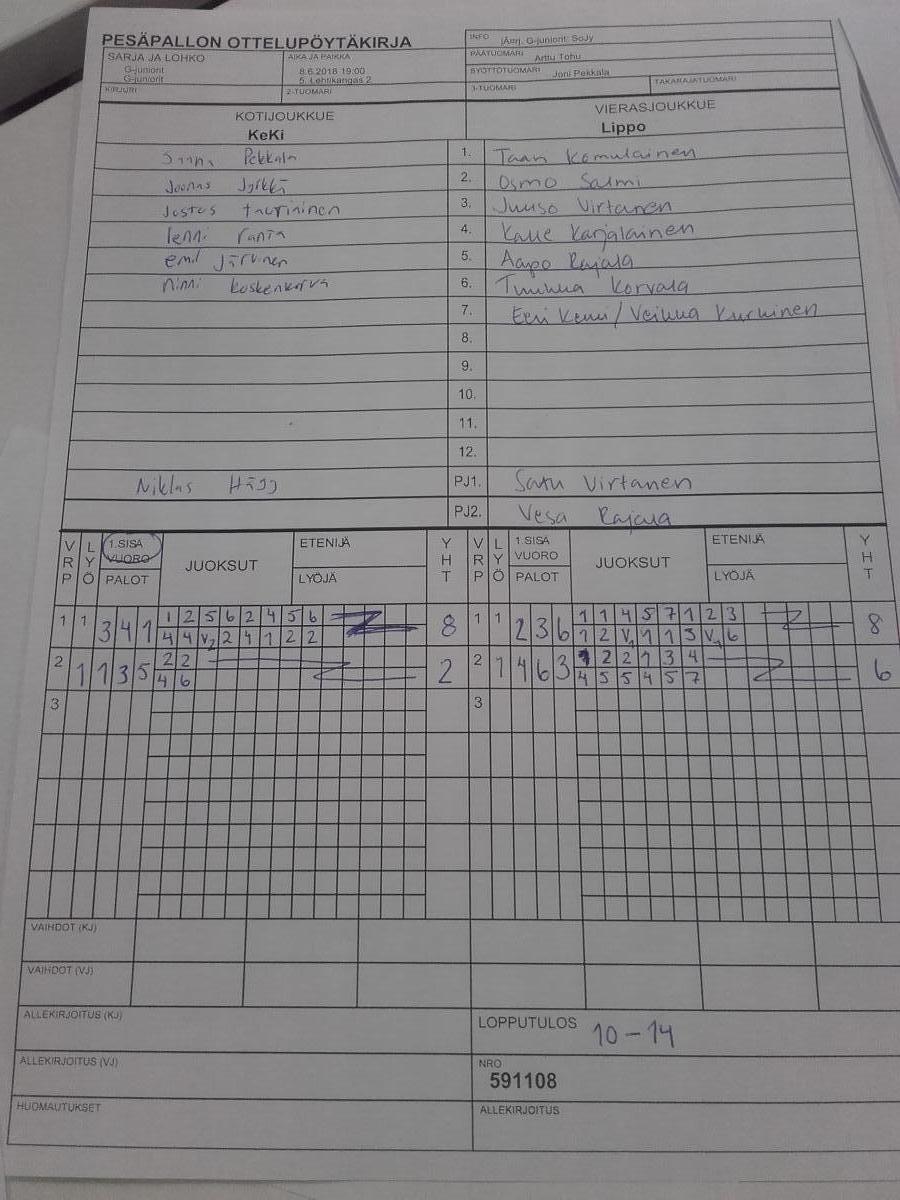 PESÄPALLON OTTELUPÖYTÄKIRJA
INFO jÄerj. G-juniorit: SoJy
SARJA JA LOHKO
G-juniorit
G-juniorit
AIKA JA PAIKKA
8.6.2018 19:00
5. Lehtikangas 2
PÄÄTUOMARI Arttu Tohu
SYÖTTÖTUOMARI Joni Pekkala
KIRJURI
2-TUOMARI
3-TUOMARI
TAKARAJATUOMARI
KOTIJOUKKUE
KeKi
VIERASJOUKKUE
Lippo
Pekkala 1. Taavi Komulainen
Joonas Jyrkkä 2. Osmo Salmi
Justus 3. Juuso Virtanen
lenni ranta 4. Kalle Karjalainen
emil Järvinen 5. Aapo Rajala
ninni koskenkorva 6. Korvala
7. Eeri Kemi / Veikka
8.
9.
10.
11.
12.
Niklas Hägg PJ1. Satu Virtanen
PJ2. Vesa Rajala
VRP LYÖ 1.SISÄ VUORO PALOT JUOKSUT ETENIJÄ LYÖJÄ YHT VRP LYÖ 1.SISÄ VUORO PALOT JUOKSUT ETENIJÄ LYÖJÄ YHT
1 1 3 4 1 1 2 5 6 2 4 5 6 8 1 1 2 3 6 1 1 4 5 7 1 2 3 8
4 4 V2 2 4 1 2 2 1 2 V1 1 1 5 V1 6
2 1 1 3 5 2 2 2 2 1 4 6 3 1 2 2 1 3 4 6
4 6 4 5 5 4 5 7
3 3
VAIHDOT (KJ)
VAIHDOT (VJ)
ALLEKIRJOITUS (KJ)
LOPPUTULOS 10-14
ALLEKIRJOITUS (VJ)
NRO
591108
HUOMAUTUKSET
ALLEKIRJOITUS